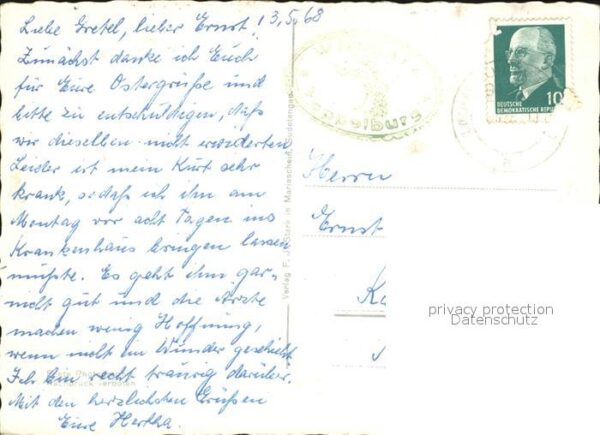 Liebe Gretel, lieber Ernst! 13.5.68
Zunächst danke ich Euch
für Eure Ostergrüße und
bitte zu entschuldigen, daß
wir dieselben nicht erwiderten
Leider ist mein Kurt sehr
krank, sodaß ich ihn am
Montag vor acht Tagen ins
Krankenhaus bringen lassen
mußte. Es geht ihm gar-
nicht gut und die Ärzte
machen wenig Hoffnung,
wenn nicht ein Wunder geschieht
Ich bin recht traurig darüber.
Mit den herzlichsten Grüßen
Eure Hertha.
Nachdruck verboten
Verlag F. J. Stark in Mariaschein, Sudetengau
DEUTSCHE
DEMOKRATISCHE REPUBLIK
10
Herrn
Ernst
privacy protection
Datenschutz